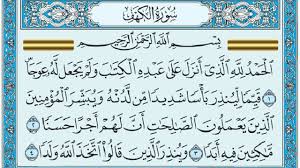 سورة الكهف
بسم الله الرحمن الرحيم
الحمد لله الذى أنزل على عبده الكتب ولم يجعل له عوجا
١ قيما لينذر بأسا شديدا من لدنه ويبشر المؤمنين
الذين يعملون الصلحت أن لهم أجرا حسنا ٢
مكثين فيه أبدا ٣ وينذر الذين قالوا اتخذ الله ولدا ٤